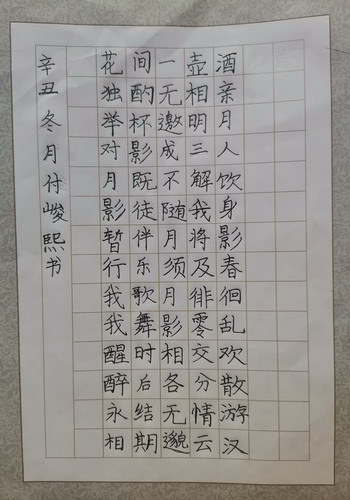 花间一壶酒
独酌无相亲
举杯邀明月
对影成三人
月既不解饮
影徒随我身
暂伴月将影
行乐须及春
我歌月徘徊
我舞影零乱
醒时相交欢
醉后各分散
永结无情游
相期邈云汉
辛丑冬月付峻熙书